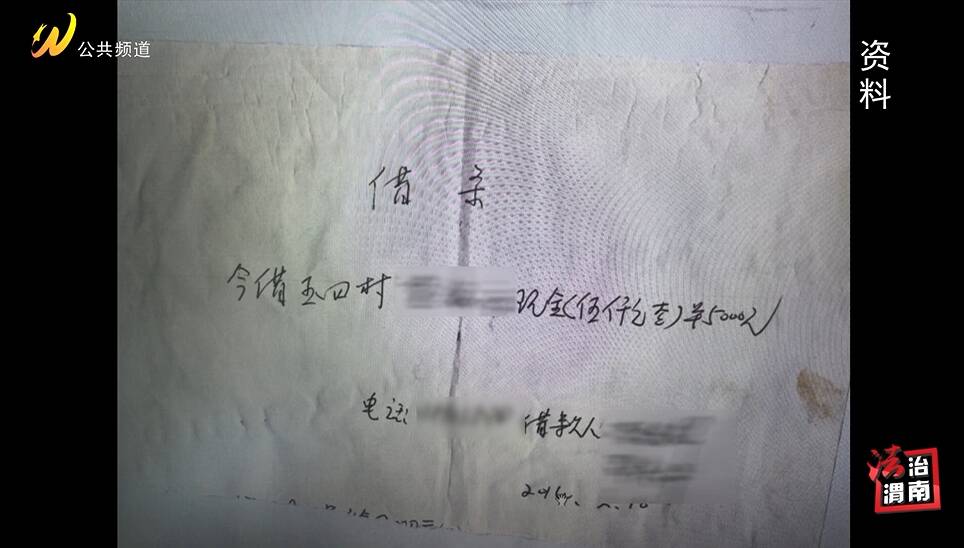 公共频道
资料
借条
今借五四村 现金(伍仟元整)¥5000元
电话:
借款人
法治渭南